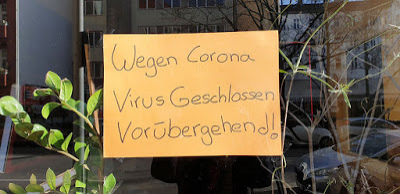 Wegen Corona
Virus Geschlossen
Vorübergehend!